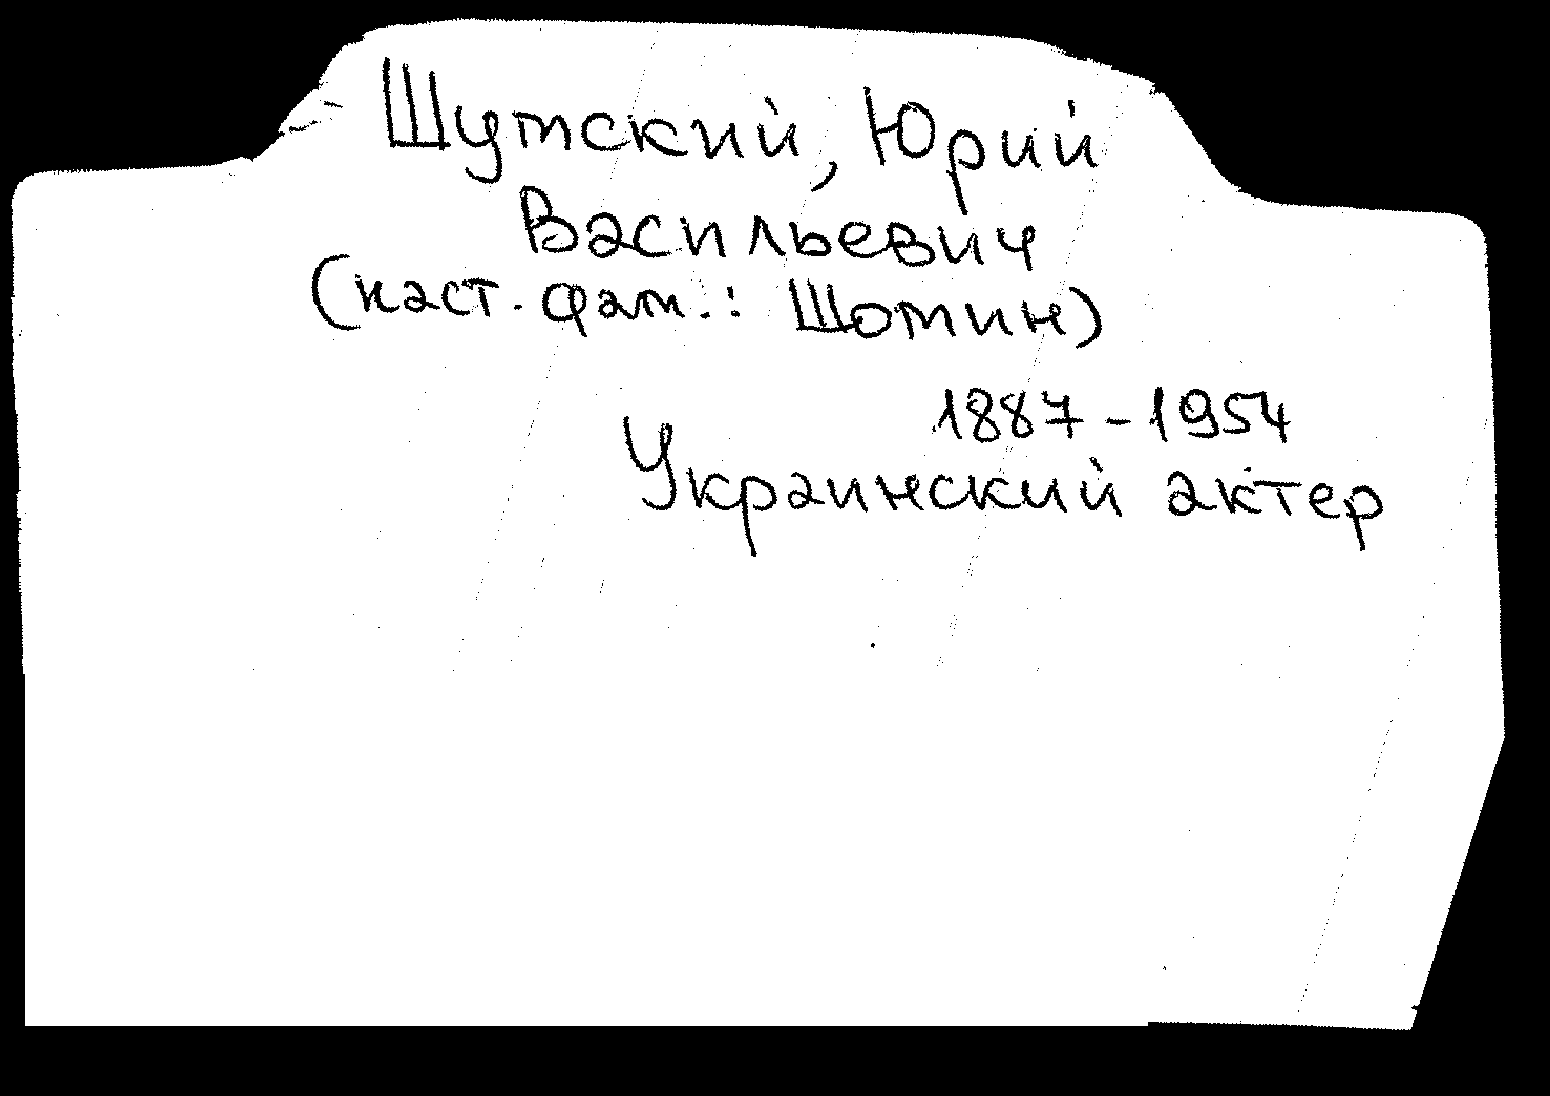 Шумский, Юрий
Васильевич
(наст. фам.: Шомин)
1887-1954
Украинский актер